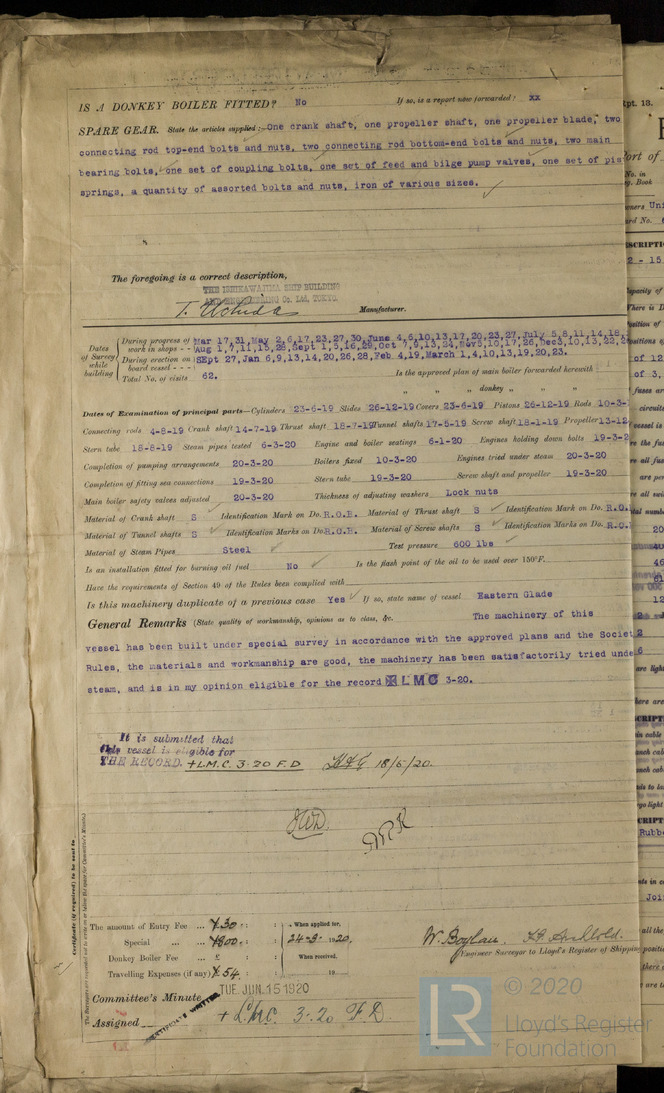 IS A DONKEY BOILER FITTED? No If so, is a report now forwarded? xx
SPARE GEAR. State the articles supplied:- One crank shaft, one propeller shaft, one propeller blade, two
connecting rod top-end bolts and nuts, two connecting rod bottom-end bolts and nuts, two main
bearing bolts, one set of coupling bolts, one set of feed and bilge pump valves, one set of pis
springs, a quantity of assorted bolts and nuts, iron of various sizes.
The foregoing is a correct description,
THE ISHIKAWAJIMA SHIP BUILDING
AND ENGINEERING Co. Ltd, TOKYO.
T. Uchida Manufacturer.
Dates of Survey while building
During progress of work in shops - - Mar 17,31, May 2,6,17,23,27,30, June 4,6,10,13,17,20,23,27, July 5,8,11,14,18,
Aug 1,7,11,15,28, Sept 1,5,16,29, Oct 7,9,13,24, Nov 5,10,17,26, Dec 3,10,13,22,
During erection on board vessel - - - Sept 27, Jan 6,9,13,14,20,26,28, Feb 4,19, March 1,4,10,13,19,20,23.
Total No. of visits 62. Is the approved plan of main boiler forwarded herewith
" " " donkey " " "
Dates of Examination of principal parts—Cylinders 23-6-19 Slides 26-12-19 Covers 23-6-19 Pistons 26-12-19 Rods 10-3-
Connecting rods 4-8-19 Crank shaft 14-7-19 Thrust shaft 18-7-19 Tunnel shafts 17-5-19 Screw shaft 18-1-19 Propeller 13-12
Stern tube 18-8-19 Steam pipes tested 6-3-20 Engine and boiler seatings 6-1-20 Engines holding down bolts 19-3-2
Completion of pumping arrangements 20-3-20 Boilers fixed 10-3-20 Engines tried under steam 20-3-20
Completion of fitting sea connections 19-3-20 Stern tube 19-3-20 Screw shaft and propeller 19-3-20
Main boiler safety valves adjusted 20-3-20 Thickness of adjusting washers Lock nuts
Material of Crank shaft S Identification Mark on Do. R.O.B. Material of Thrust shaft S Identification Mark on Do. R.O.
Material of Tunnel shafts S Identification Marks on Do. R.O.B. Material of Screw shafts S Identification Marks on Do. R.O.
Material of Steam Pipes Steel Test pressure 600 lbs
Is an installation fitted for burning oil fuel No Is the flash point of the oil to be used over 150°F.
Have the requirements of Section 49 of the Rules been complied with
Is this machinery duplicate of a previous case Yes If so, state name of vessel Eastern Glade
General Remarks (State quality of workmanship, opinions as to class, &c. The machinery of this
vessel has been built under special survey in accordance with the approved plans and the Societ
Rules, the materials and workmanship are good, the machinery has been satisfactorily tried unde
steam, and is in my opinion eligible for the record LMC 3-20.
It is submitted that
this vessel is eligible for
THE RECORD. +L.M.C. 3.20 F.D 18/6/20.
Certificate (if required) to be sent to
The amount of Entry Fee ... ¥30 : : When applied for,
Special ... ... ¥800 : : 24-3-1920.
Donkey Boiler Fee ... £ : : When received,
Travelling Expenses (if any) ¥54 : : 19
W. Boylan.
Engineer Surveyor to Lloyd's Register of Shipping
Committee's Minute TUE. JUN. 15 1920
CERTIFICATE WRITTEN
Assigned + L.M.C. 3.20 F.D.
LR © 2020
Lloyd's Register
Foundation